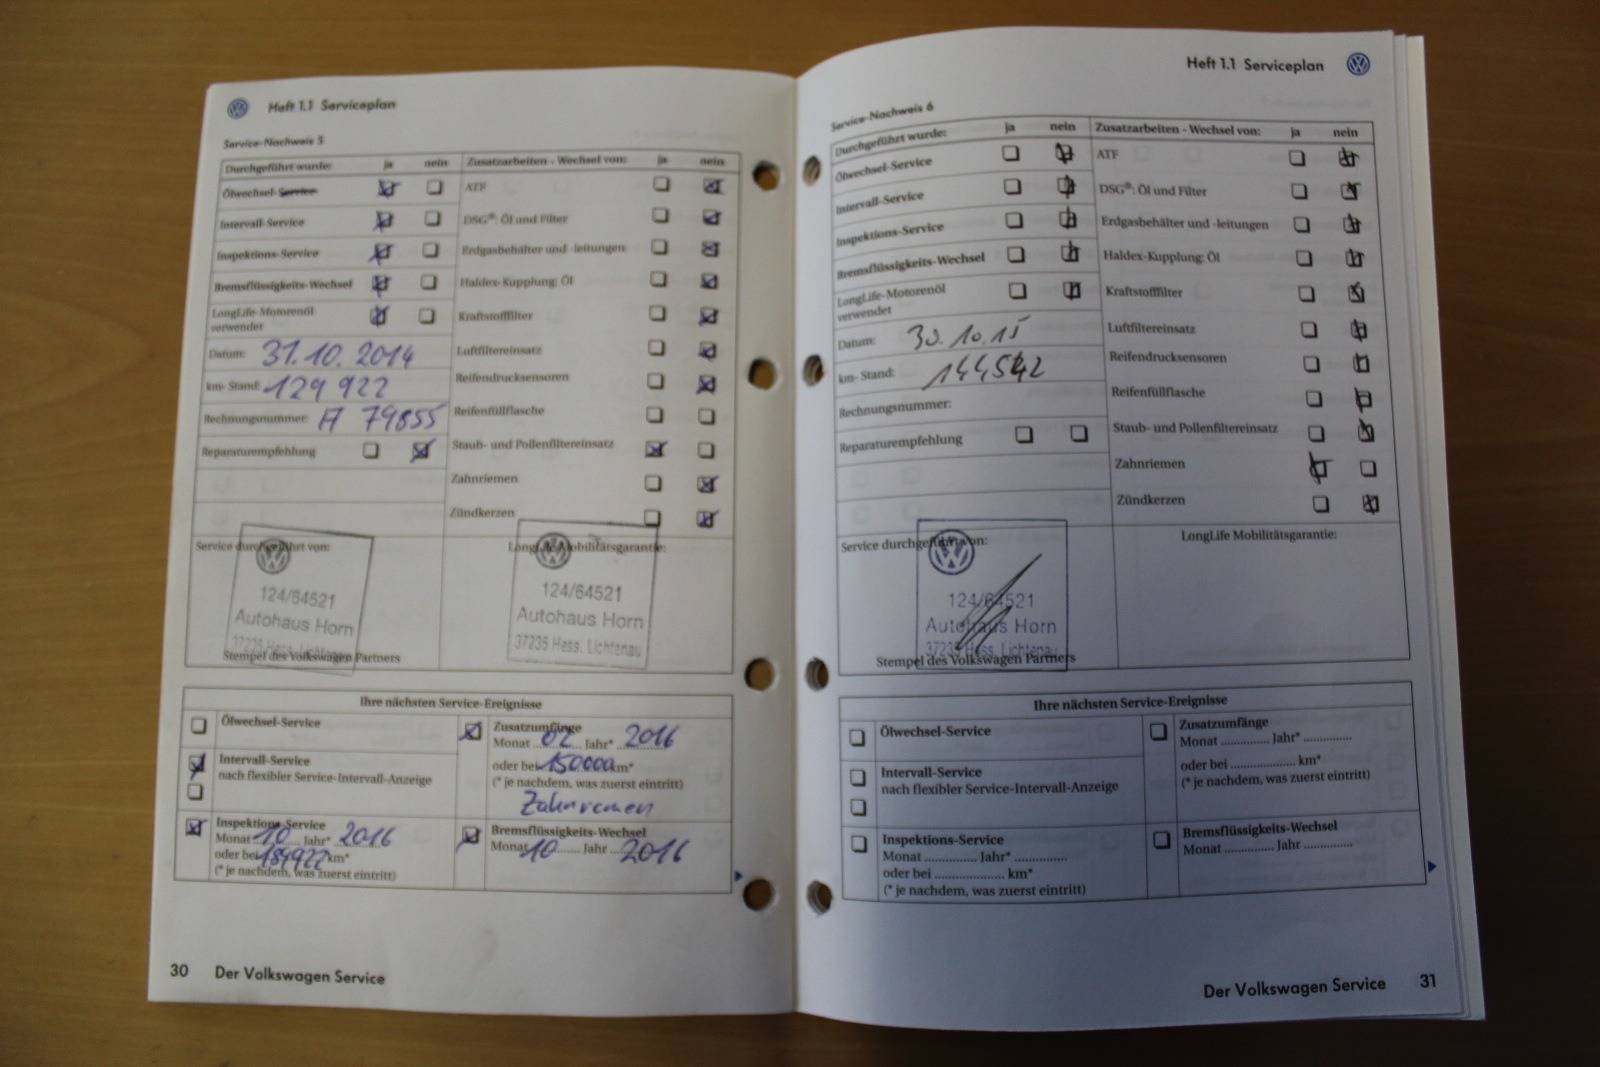 Heft 1.1 Serviceplan
Service-Nachweis 5
Durchgeführt wurde: ja nein Zusatzarbeiten - Wechsel von: ja nein
Ölwechsel-Service ATF
Intervall-Service DSG®: Öl und Filter
Inspektions-Service Erdgasbehälter und -leitungen
Bremsflüssigkeits-Wechsel Haldex-Kupplung: Öl
LongLife-Motorenöl Kraftstofffilter
verwendet
Datum: 31.10.2014 Luftfiltereinsatz
km-Stand: 129 922 Reifendrucksensoren
Rechnungsnummer: A 79855 Reifenfüllflasche
Reparaturempfehlung Staub- und Pollenfiltereinsatz
Zahnriemen
Zündkerzen
Service durchgeführt von: LongLife Mobilitätsgarantie:
124/64521 124/64521
Autohaus Horn Autohaus Horn
37235 Hess. Lichtenau 37235 Hess. Lichtenau
Stempel des Volkswagen Partners
Ihre nächsten Service-Ereignisse
Ölwechsel-Service
Zusatzumfänge
Monat 02 Jahr* 2016
oder bei 150000 km*
(* je nachdem, was zuerst eintritt)
Zahnremen
Intervall-Service
nach flexibler Service-Intervall-Anzeige
Inspektions-Service
Monat 10 Jahr* 2016
oder bei 189922 km*
(* je nachdem, was zuerst eintritt)
Bremsflüssigkeits-Wechsel
Monat 10 Jahr 2016
30 Der Volkswagen Service
Heft 1.1 Serviceplan
Service-Nachweis 6
Durchgeführt wurde: ja nein Zusatzarbeiten - Wechsel von: ja nein
Ölwechsel-Service ATF
Intervall-Service DSG®: Öl und Filter
Inspektions-Service Erdgasbehälter und -leitungen
Bremsflüssigkeits-Wechsel Haldex-Kupplung: Öl
LongLife-Motorenöl Kraftstofffilter
verwendet
Datum: 30.10.15 Luftfiltereinsatz
km-Stand: 144542 Reifendrucksensoren
Rechnungsnummer: Reifenfüllflasche
Reparaturempfehlung Staub- und Pollenfiltereinsatz
Zahnriemen
Zündkerzen
Service durchgeführt von: LongLife Mobilitätsgarantie:
124/64521
Autohaus Horn
37235 Hess. Lichtenau
Stempel des Volkswagen Partners
Ihre nächsten Service-Ereignisse
Ölwechsel-Service
Zusatzumfänge
Monat .............. Jahr* ..............
oder bei .................... km*
(* je nachdem, was zuerst eintritt)
Intervall-Service
nach flexibler Service-Intervall-Anzeige
Inspektions-Service
Monat .............. Jahr* ..............
oder bei .................... km*
(* je nachdem, was zuerst eintritt)
Bremsflüssigkeits-Wechsel
Monat .............. Jahr ..............
Der Volkswagen Service 31